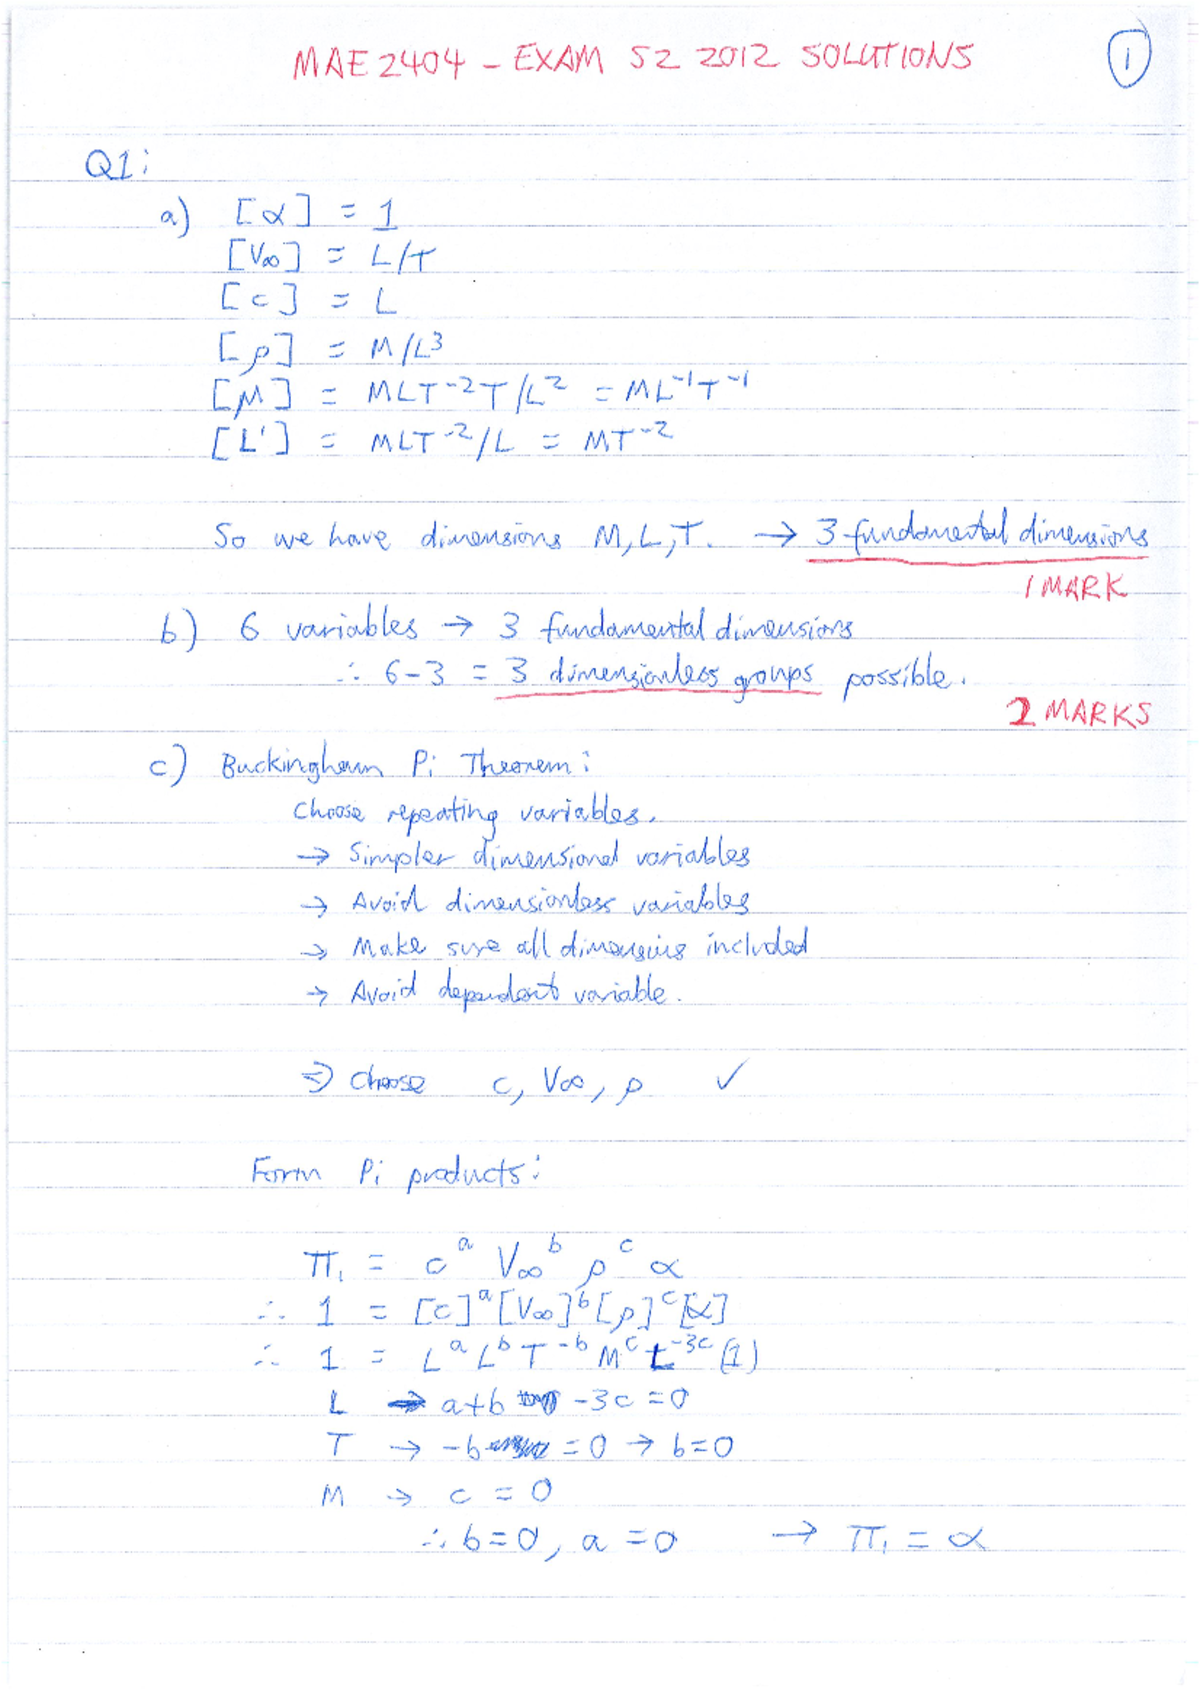 MAE2404 - EXAM S2 2012 SOLUTIONS
1
Q1:
a) [α] = 1
[V∞] = L/T
[c] = L
[ρ] = M/L³
[μ] = MLT⁻²T/L² = ML⁻¹T⁻¹
[L'] = MLT⁻²/L = MT⁻²
So we have dimensions M, L, T. → 3 fundamental dimensions
1 MARK
b) 6 variables → 3 fundamental dimensions
∴ 6-3 = 3 dimensionless groups possible.
2 MARKS
c) Buckingham Pi Theorem:
Choose repeating variables.
→ Simpler dimensional variables
→ Avoid dimensionless variables
→ Make sure all dimensions included
→ Avoid dependent variable.
⇒ choose c, V∞, ρ ✓
Form Pi products:
π₁ = cᵃ V∞ᵇ ρᶜ α
∴ 1 = [c]ᵃ[V∞]ᵇ[ρ]ᶜ[α]
∴ 1 = LᵃLᵇT⁻ᵇMᶜL⁻³ᶜ(1)
L → a+b -3c = 0
T → -b = 0 → b=0
M → c = 0
∴ b=0, a=0 → π₁ = α